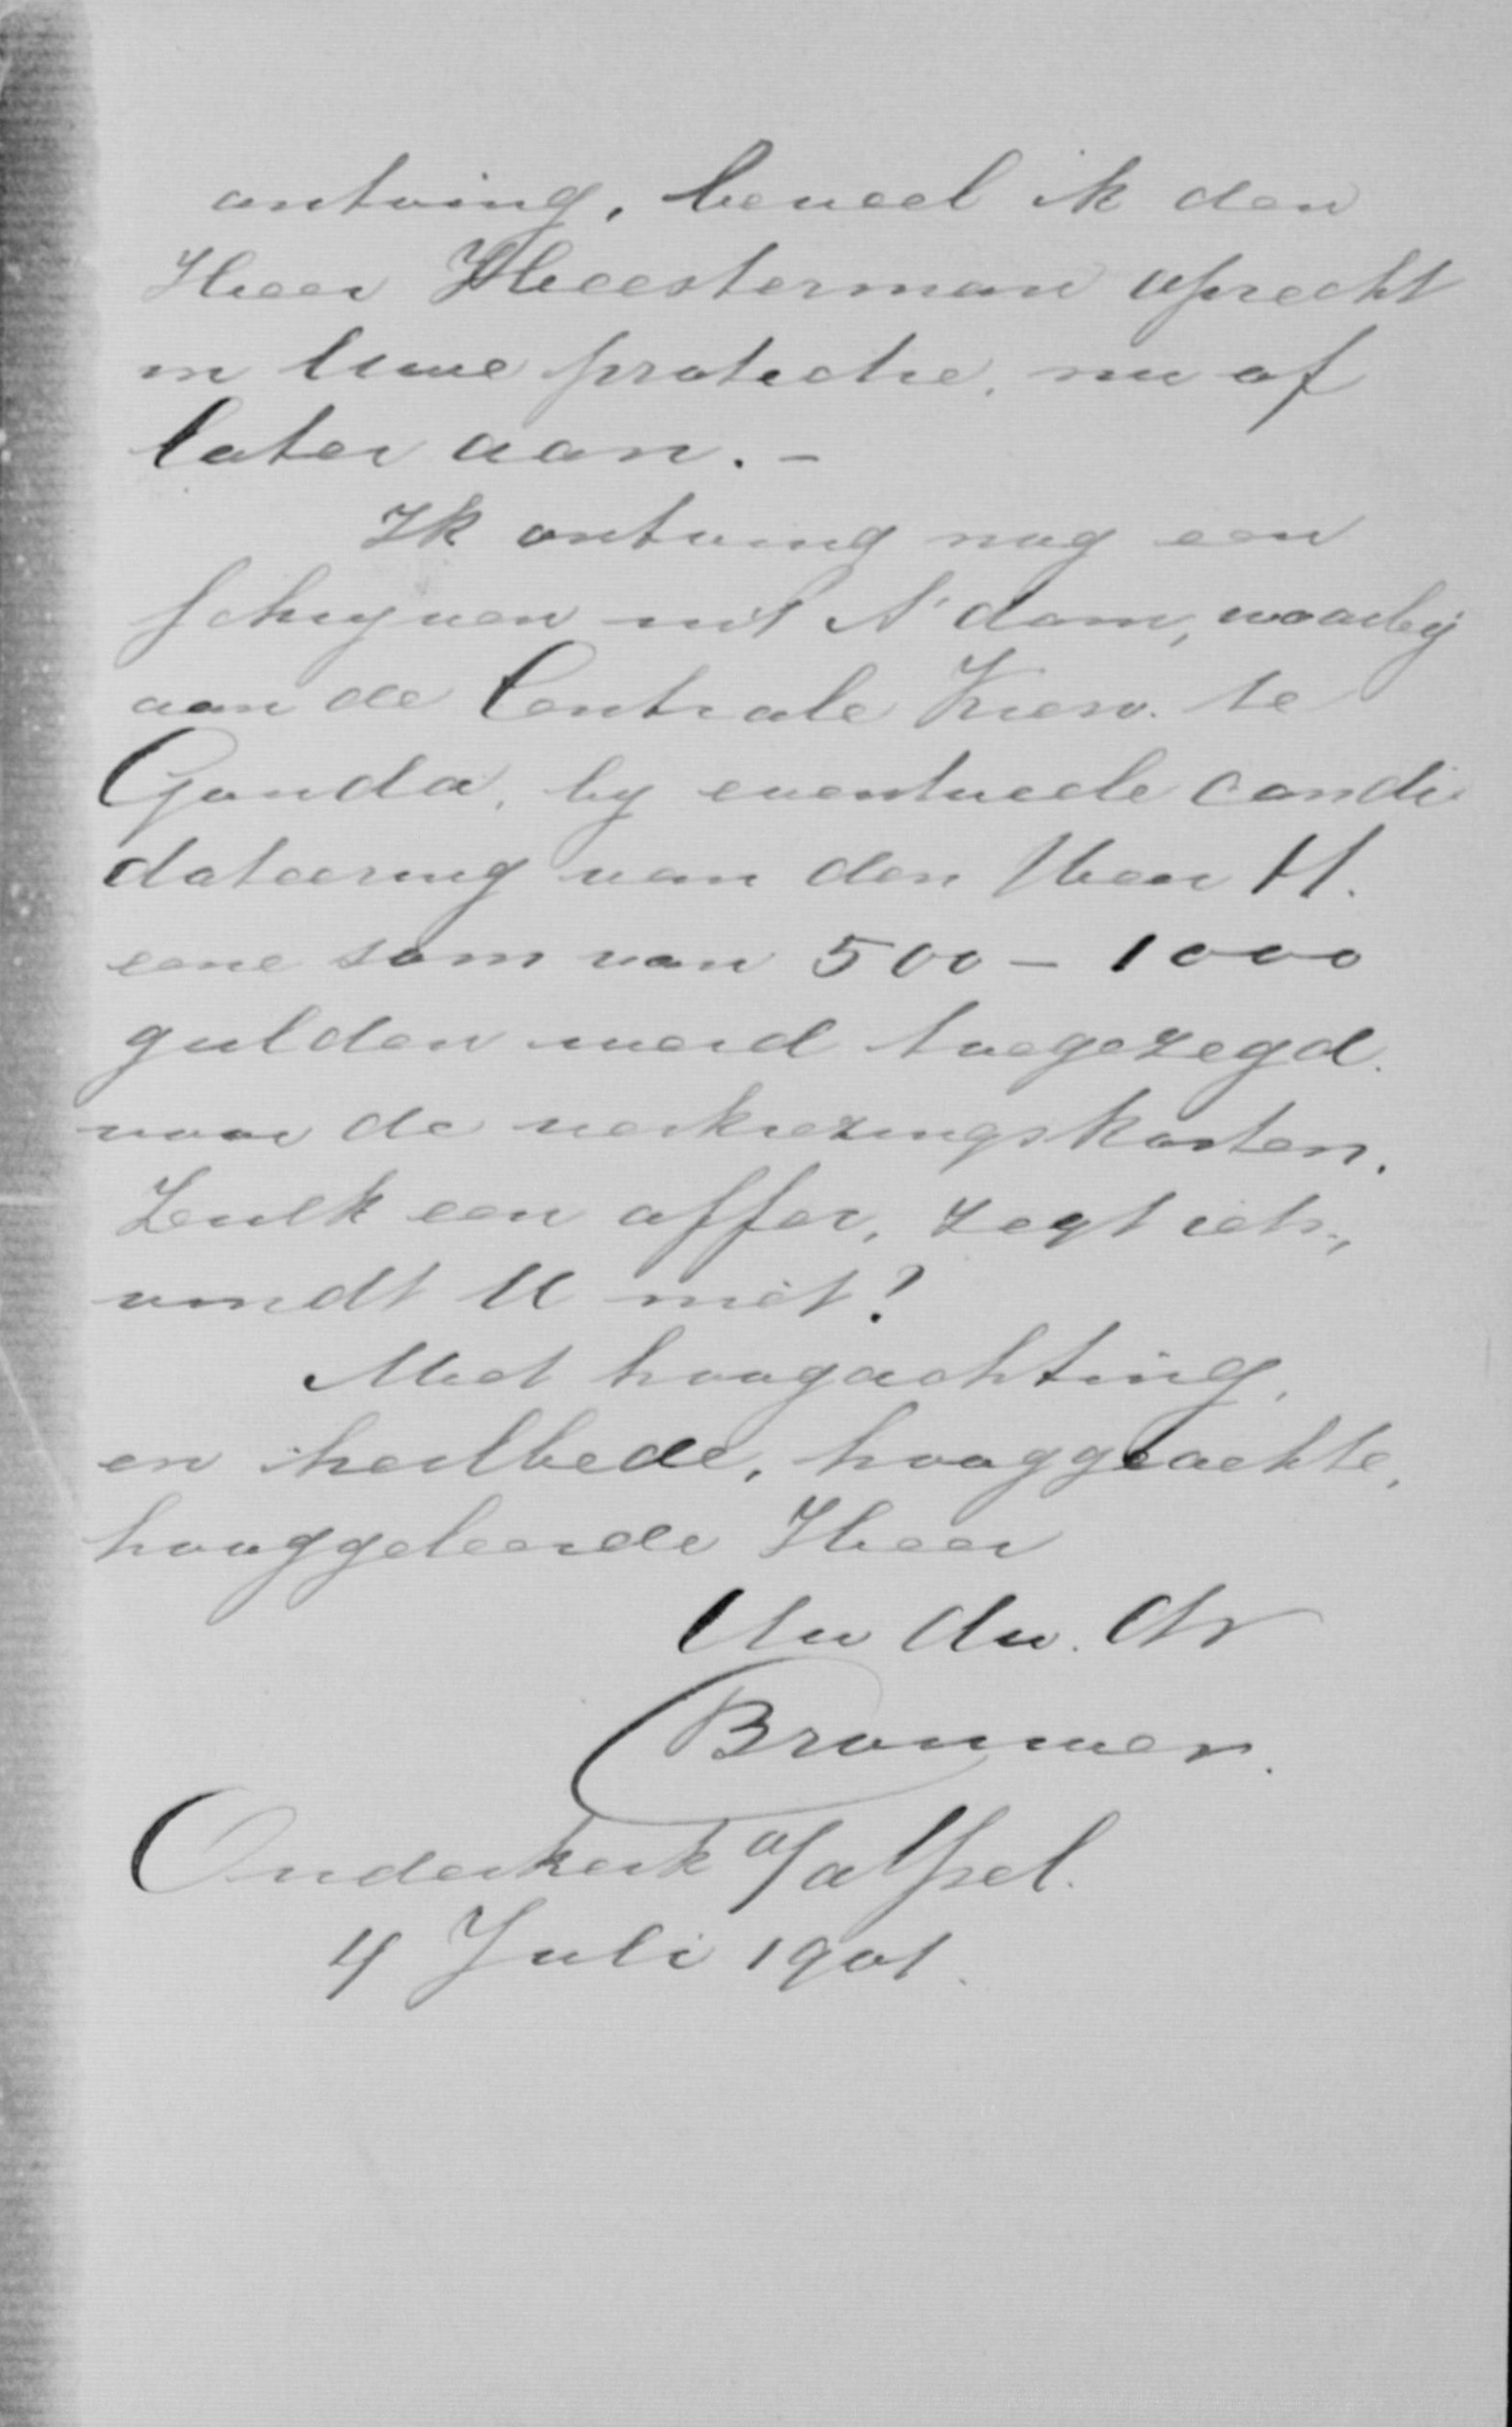 ontving, beveel ik den
Heer Heesterman oprecht
in Uwe protectie, nu of
later aan. -
Ik ontving nog een
schryven uit A'dam, waarbij
aan de Centrale Kiesv. te
Gouda, by eventueele candi
dateering van den Heer H.
eene som van 500 - 1000
gulden werd toegezegd
voor de verkiezingskosten.
Zulk een offer, zegt iets,
vindt U niet?
Met hoogachting,
en heilbede, hooggeachte,
hooggeleerde Heer
Uw dw. dr
Brouwer.
Ouderkerk a/d IJsel.
4 Juli 1901.